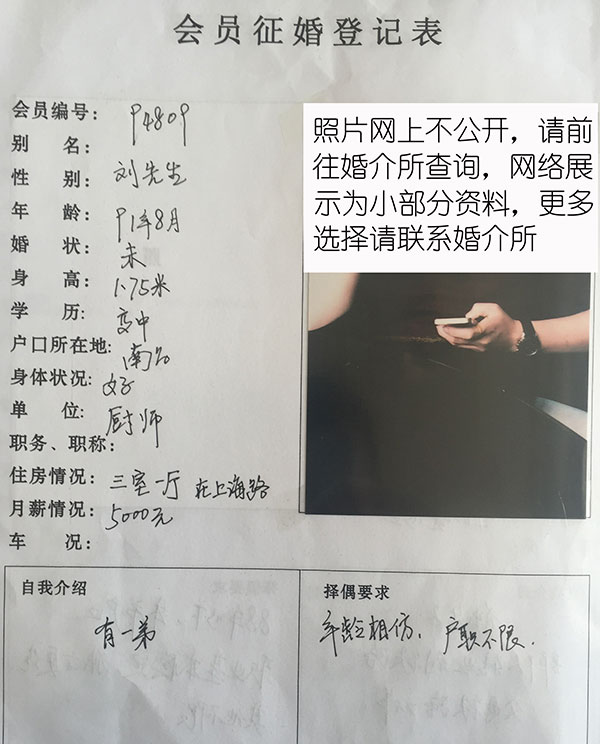 会员征婚登记表
会员编号: 94809
别 名:
性 别: 刘先生
年 龄: 91年8月
婚 状: 未
身 高: 1.75米
学 历: 高中
户口所在地: 南昌
身体状况: 好
单 位: 厨师
职务、职称:
住房情况: 三室一厅 在上海路
月薪情况: 5000元
车 况:
照片网上不公开，请前
往婚介所查询，网络展
示为小部分资料，更多
选择请联系婚介所
自我介绍
有一弟
择偶要求
年龄相仿、户职不限.